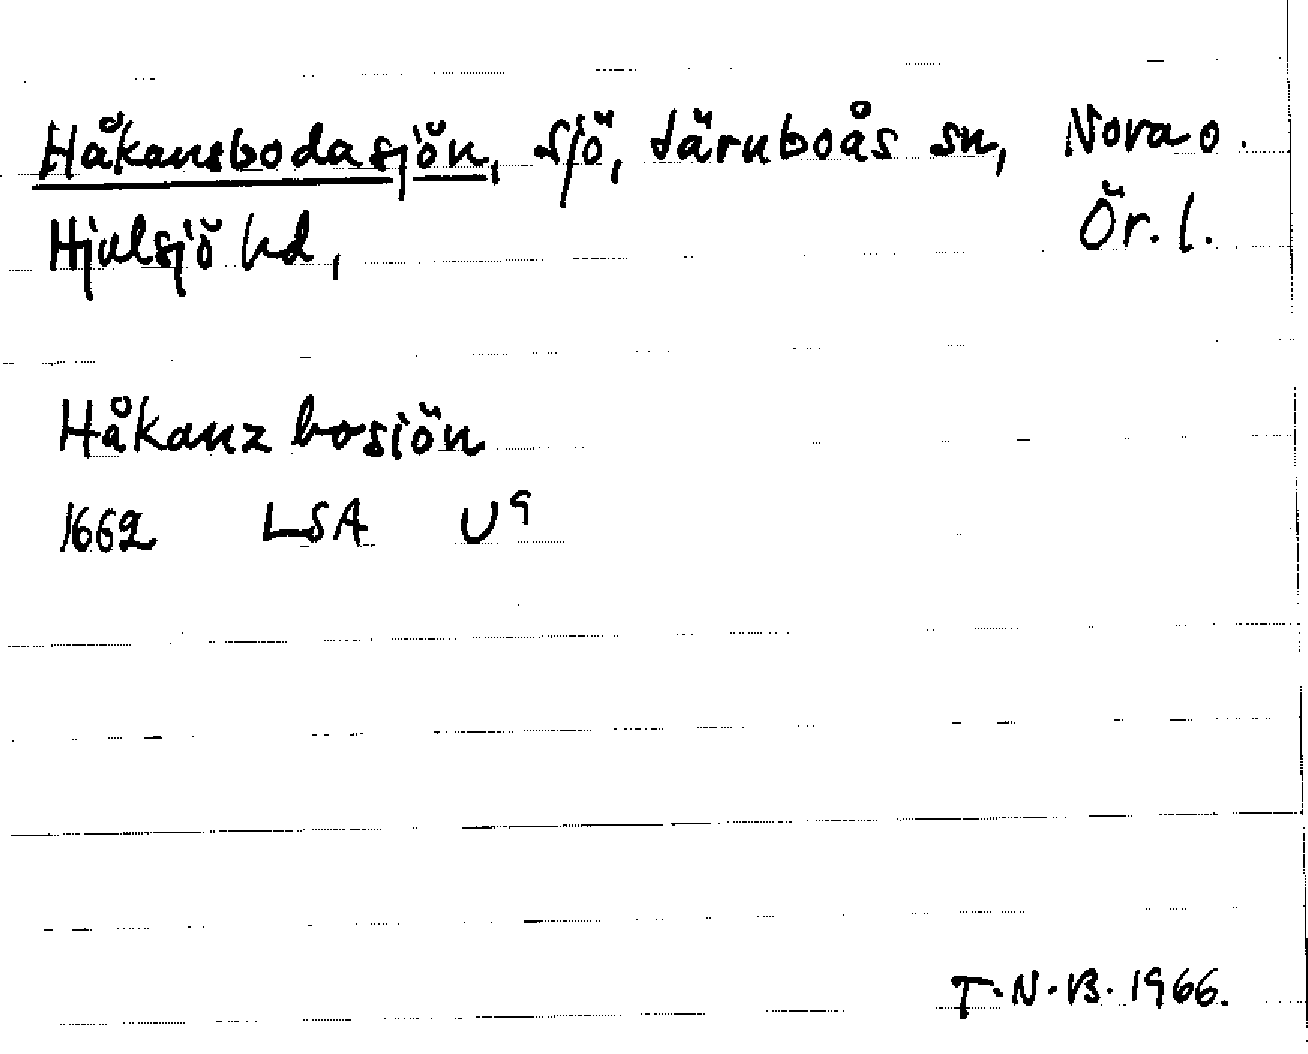 Håkansbodasjön, sjö, Järnboås sn, Nora o.
Hjulsjö hd, Ör. l.
Håkanz bosiön
1662 LSA U9
T.N.B. 1966.